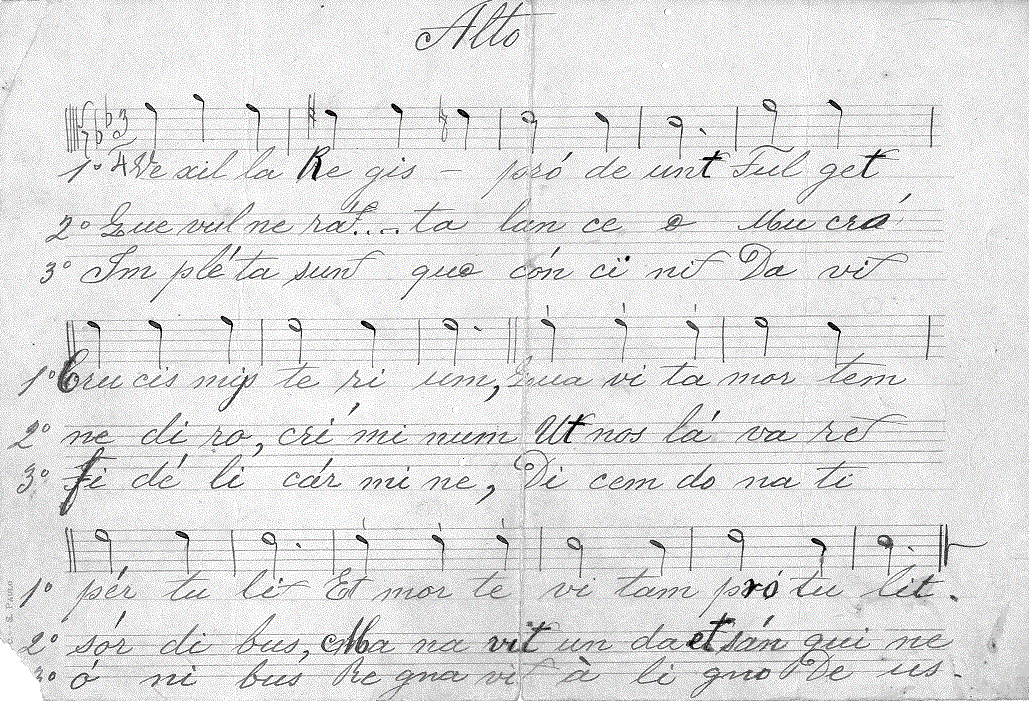 Alto
3
4
1º Ve xil la Re gis – pró de unt Ful get
2º Que vul ne rát.... ta lan ce o Mu cró
3º Im plé ta sunt quo cón ci nit Da vit
1º Cru cis mys te ri um, Qua vi ta mor tem
2º ne di ro, crí mi num Ut nos lá va ret
3º Fi dé li cár mi ne, Di cem do na ti
1º pér tu lit Et mor te vi tam pró tu lit.
2º sór di bus, Ma na vit un da et sán qui ne
3º ó ni bus Re gna vit à li gno De us.
S. PAULO